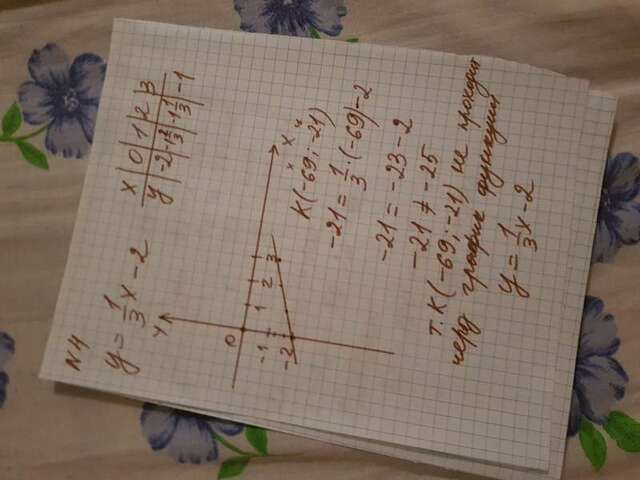 N4
y = 1/3 x - 2
x | 0 | 1 | 2 | 3
y | -2 | -1 2/3 | -1 1/3 | -1
y
0 1 2 3 x
-1
-2
x y
K(-69; -21)
-21 = 1/3 · (-69) - 2
-21 = -23 - 2
-21 ≠ -25
т. K(-69; -21) не проходит
через график функции
y = 1/3 x - 2